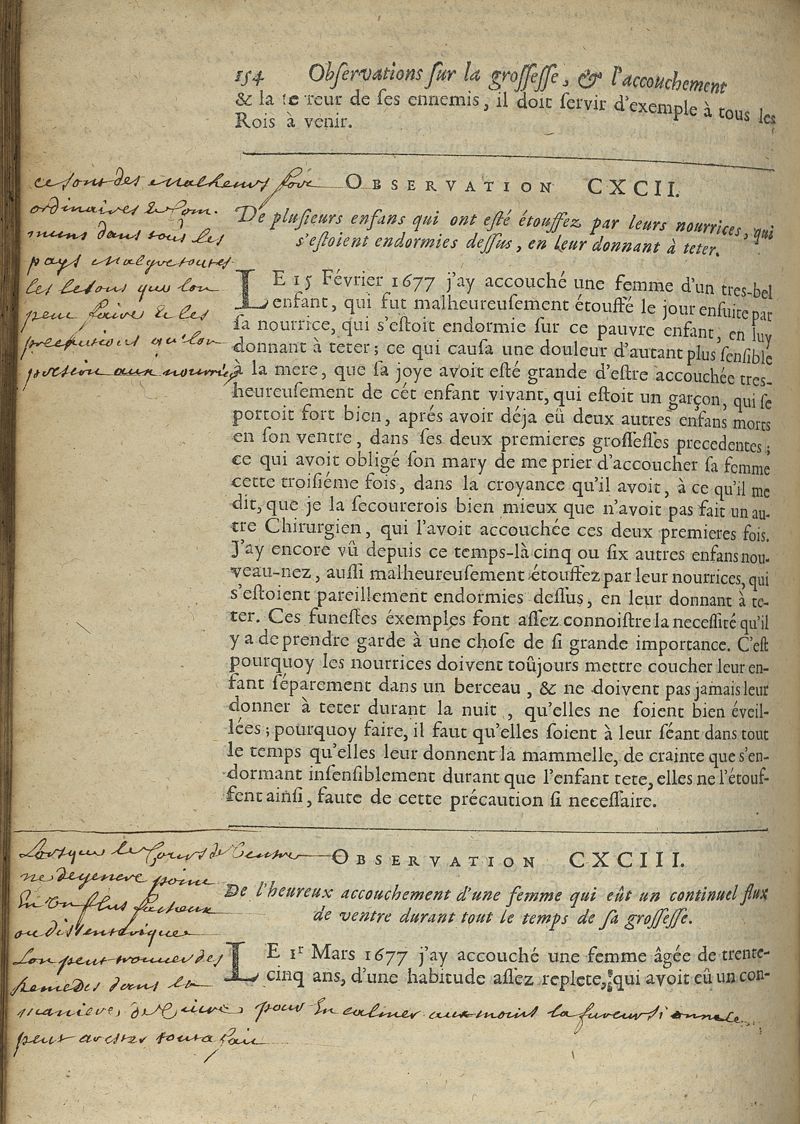 154 Obſervations ſur la groſſeſſe, & l'accouchement
& la terreur de ſes ennemis, il doit ſervir d'exemple à tous les
Rois à venir.
OBSERVATION CXCII.
De pluſieurs enfans qui ont eſté étouffez par leurs nourrices, qui
s'eſtoient endormies deſſus, en leur donnant à teter.
LE 15 Février 1677 j'ay accouché une femme d'un tres-bel
enfant, qui fut malheureuſement étouffé le jour enſuite par
ſa nourrice, qui s'eſtoit endormie ſur ce pauvre enfant, en luy
donnant à teter; ce qui cauſa une douleur d'autant plus ſenſible
à la mere, que ſa joye avoit eſté grande d'eſtre accouchée tres-
heureuſement de cét enfant vivant, qui eſtoit un garçon, qui ſe
portoit fort bien, aprés avoir déja eû deux autres enfans morts
en ſon ventre, dans ſes deux premieres groſſeſſes precedentes;
ce qui avoit obligé ſon mary de me prier d'accoucher ſa femme
cette troiſiéme fois, dans la croyance qu'il avoit, à ce qu'il me
dit, que je la ſecourerois bien mieux que n'avoit pas fait un au-
tre Chirurgien, qui l'avoit accouchée ces deux premieres fois.
J'ay encore vû depuis ce temps-là cinq ou ſix autres enfans nou-
veau-nez, auſſi malheureuſement étouffez par leur nourrices, qui
s'eſtoient pareillement endormies deſſus, en leur donnant à te-
ter. Ces funeſtes éxemples font aſſez connoiſtre la neceſſité qu'il
y a de prendre garde à une choſe de ſi grande importance. C'eſt
pourquoy les nourrices doivent toûjours mettre coucher leur en-
fant ſéparement dans un berceau, & ne doivent pas jamais leur
donner à teter durant la nuit, qu'elles ne ſoient bien éveil-
lées; pourquoy faire, il faut qu'elles ſoient à leur ſéant dans tout
le temps qu'elles leur donnent la mammelle, de crainte que s'en-
dormant inſenſiblement durant que l'enfant tete, elles ne l'étouf-
fent ainſi, faute de cette précaution ſi neceſſaire.
ce sont des malheurs fort
ordinaires & com
muns dans tous les
pays malgré toutes
les lecons que lon
peut faire & les
precautions qu'lon
aux nourrices
OBSERVATION CXCIII.
De l'heureux accouchement d'une femme qui eût un continuel flux
de ventre durant tout le temps de ſa groſſeſſe.
LE 1r Mars 1677 j'ay accouché une femme âgée de trente-
cinq ans, d'une habitude aſſez replete, qui avoit eû un con-
Lorsque le Cours de Ventre
ne degenere point
En un flus facheux
ou dissenterique
Lon peut trouver des
Remedes dans la
maniere de vivre, pour En calmer au moins la fureur si on ne le
peut arester tout a fait